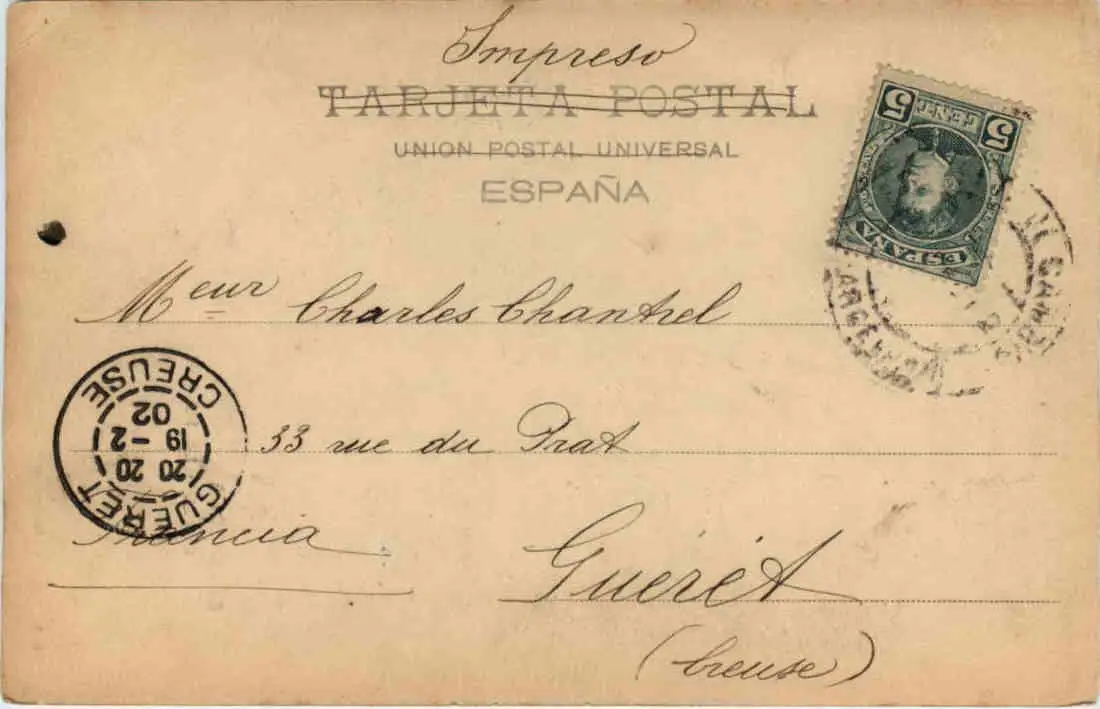 Impreso
TARJETA POSTAL
UNION POSTAL UNIVERSAL
ESPAÑA
5 5
ESPAÑA
Meur Charles Chantrel
33 rue du Prat
Francia
Guéret
(Creuse)
GUERET
20 20
19 - 2
02
CREUSE